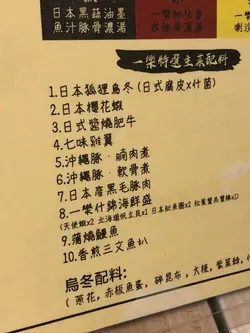 日本黑蒜油墨
魚汁豚骨濃湯
豚骨濃湯
一樂特選主菜配料
1.日本狐狸烏冬(日式腐皮x什菌)
2.日本櫻花蝦
3.日式醬燒肥牛
4.七味雞翼
5.沖繩豚﹒腩肉煮
6.沖繩豚﹒軟骨煮
7.日本産黑毛豚肉
8.一樂什錦海鮮盛
(天使蝦x2 北海道帆立貝x1 日本魷魚圈x2 松葉蟹蟹鉗x1)
9.蒲燒鰻魚
10.香煎三文魚扒
烏冬配料:
(蔥花,赤板魚蛋,碎昆布,大棵,紫菜絲,